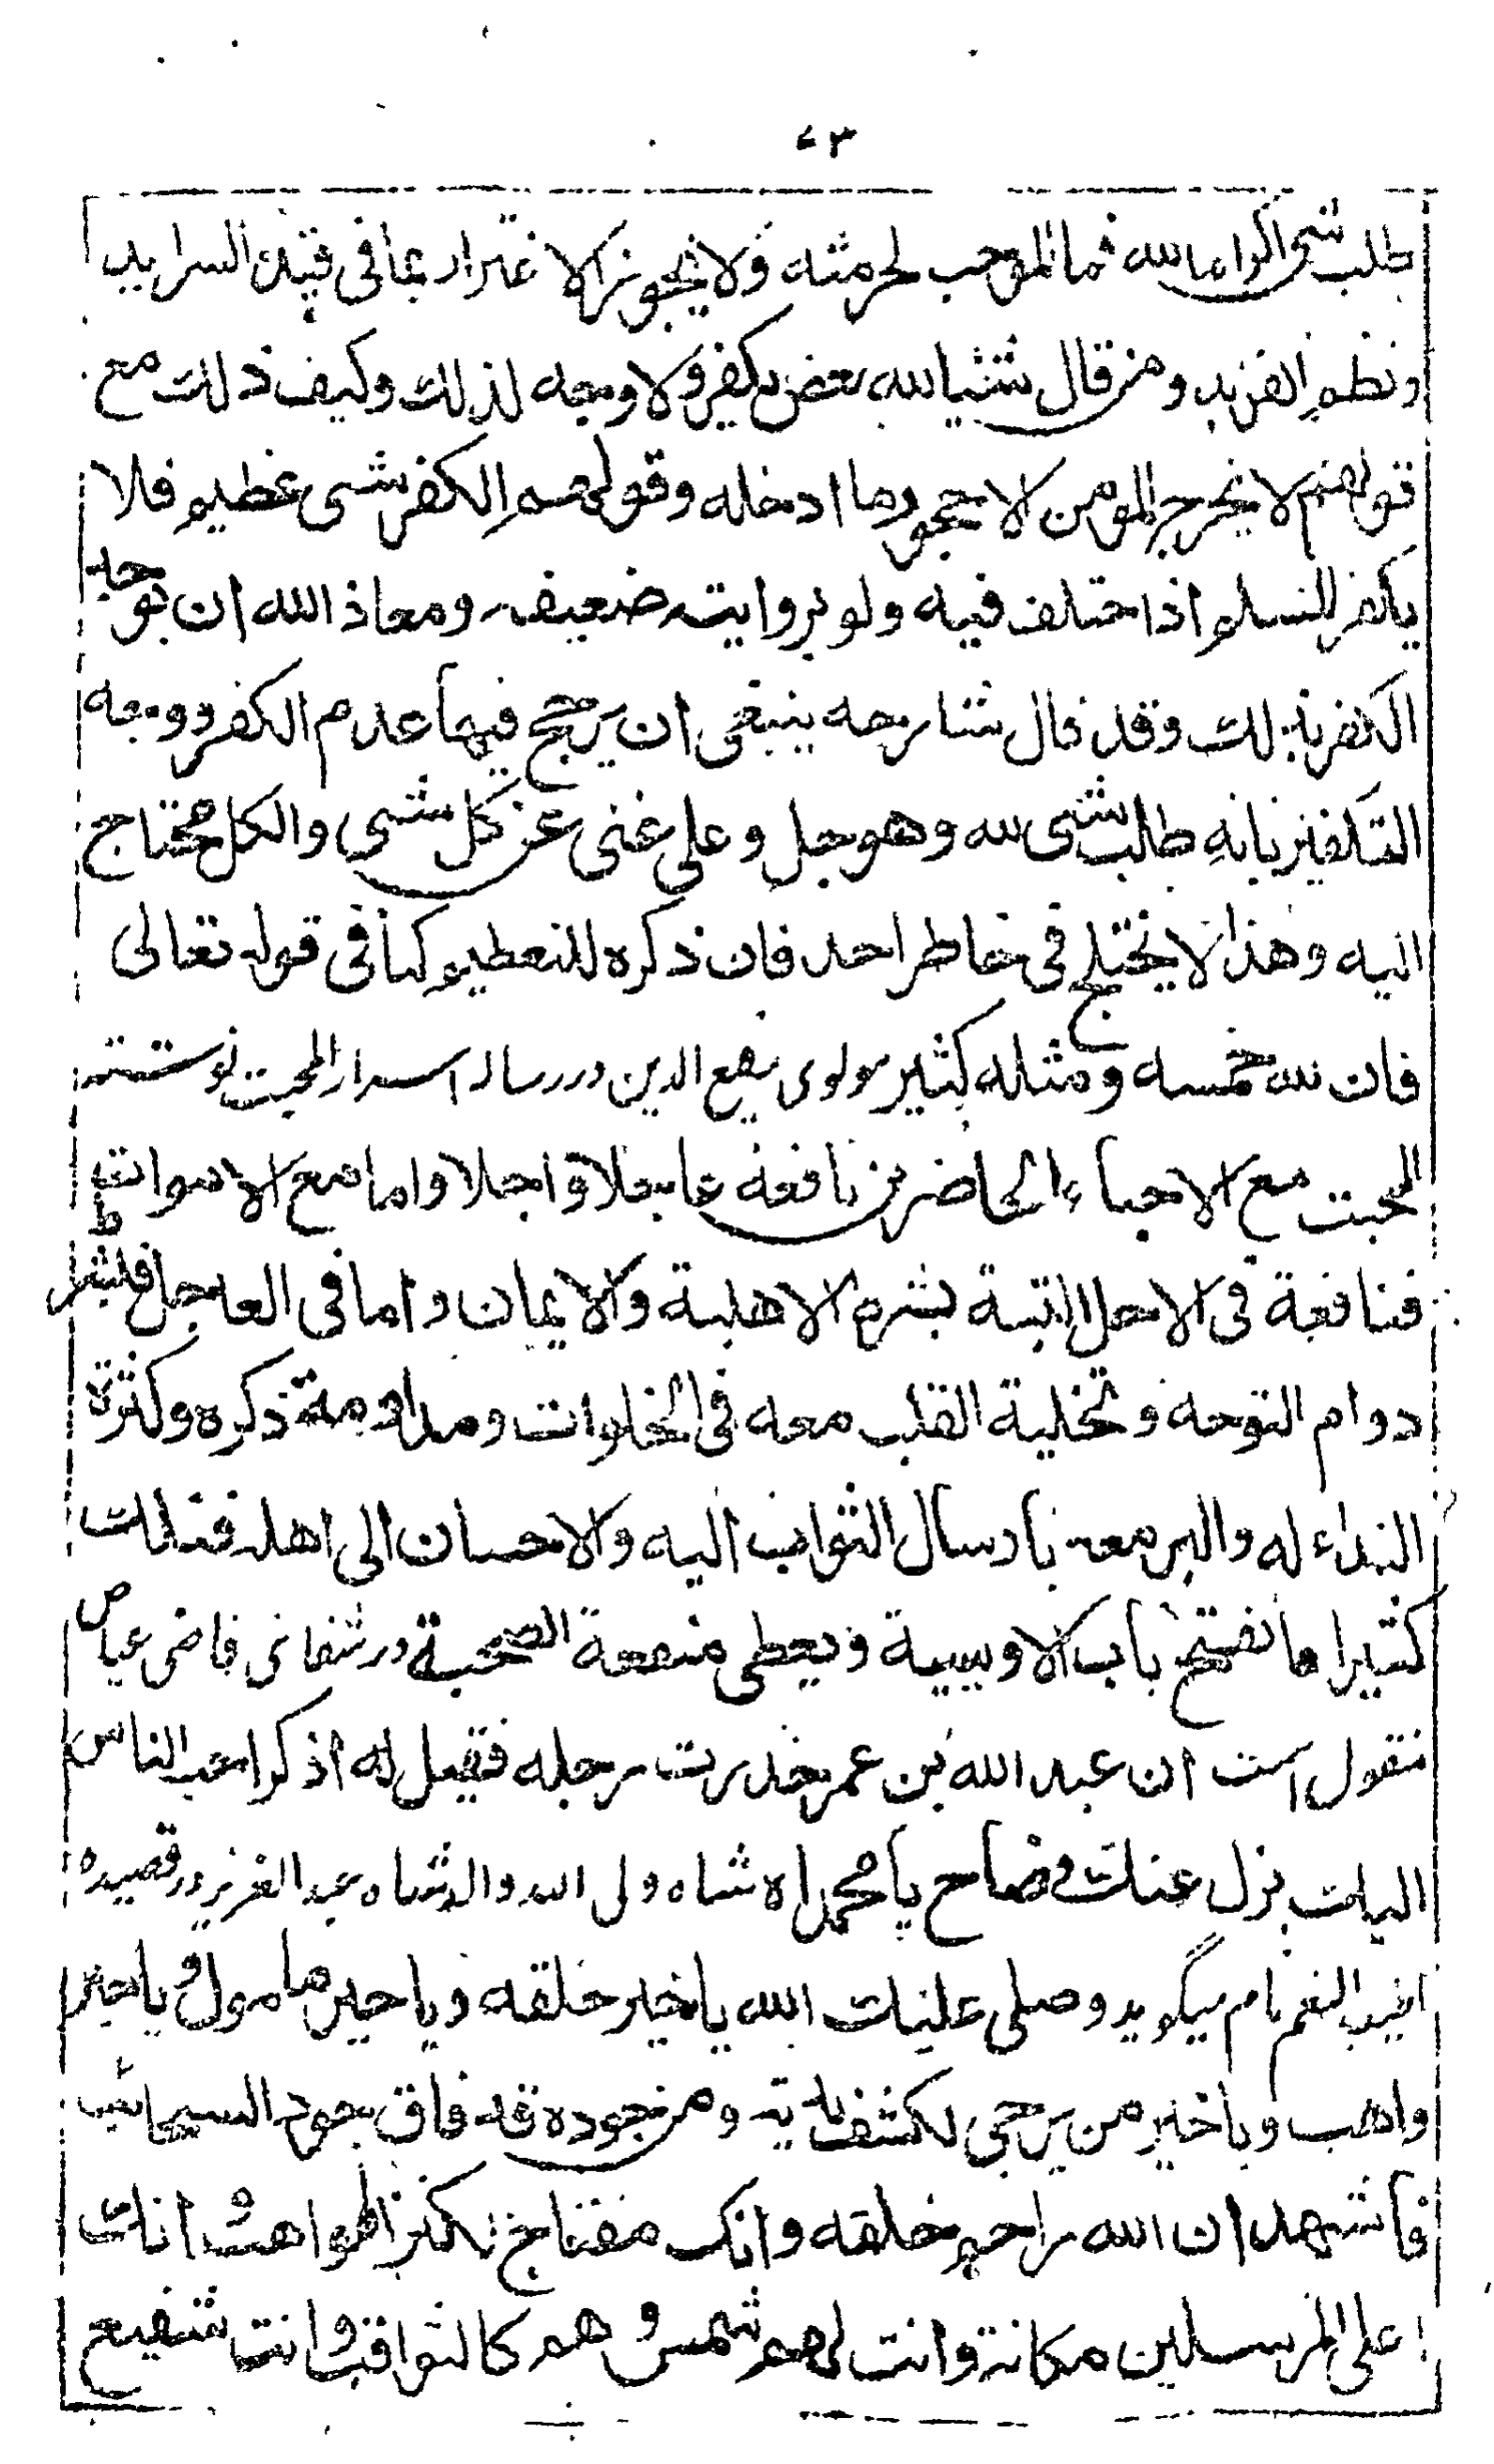 ۷۳
طلب شی اکراما لله فما الموجب لحرمته ولا یجوز الاغترار بما فی قید السراید
ونظم الفرید ومن قال شئیا لله بعض یکفر ولا وجه لذلك وکیف ذلك مع
قولهم لا یخرج المومن الا جحود ما ادخله وقولهم الکفر شی عظیم فلا
یکفر المسلم اذا ختلف فیه ولو بروایته ضعیف ومعاذ الله ان یوجد
الکفر بذلك وقد قال شارحه ینبغی ان یرجح فیها عدم الکفر ووجه
التکفیر بانه طلب شی لله وهو جل وعلی غنی عن کل شی والکل محتاج
الیه وهذا لا یختلج فی خاطر احد فان ذکره للتعظیم کما فی قوله تعالی
فان لله خمسه ومثله کثیر مولوی رفیع الدین در رساله اسرار المحبت نوشته
المحبت مع الاحباء الحاضرین نافعة عاجلا و اجلا واما مع الاموات
فنافعة فی الاجل البتة بشرط الاهلیة والایمان واما فی العاجل فبشرط
دوام التوجه وتخلیة القلب معه فی الخلوات ومداومة ذکره وکثرة
النداء له والبر معه بارسال الثواب الیه والاحسان الی اهله فذلك
کثیرا ما یفتح باب الاویسیة ویعطی منفعة الصحبة در شفائی قاضی عیاض
منقول است ان عبد الله بن عمر خدرت رجله فقیل له اذکر احب الناس
الیك یزل عنك فصاح یا محمداه شاه ولی الله والد شاه عبد العزیز در قصیده
اطیب النغم نام میگوید وصلی علیك الله یا خیر خلقه ویا خیر مامول ویا خیر
واهب ویا خیر من یرجی لکشف رزیة ومن جوده قد فاق جود السحائب
فاشهد ان الله راحم خلقه وانك مفتاح لکنز المواهب وانك
اعلی المرسلین مکانة وانت لهم شمس وهم کالثواقب وانت شفیع